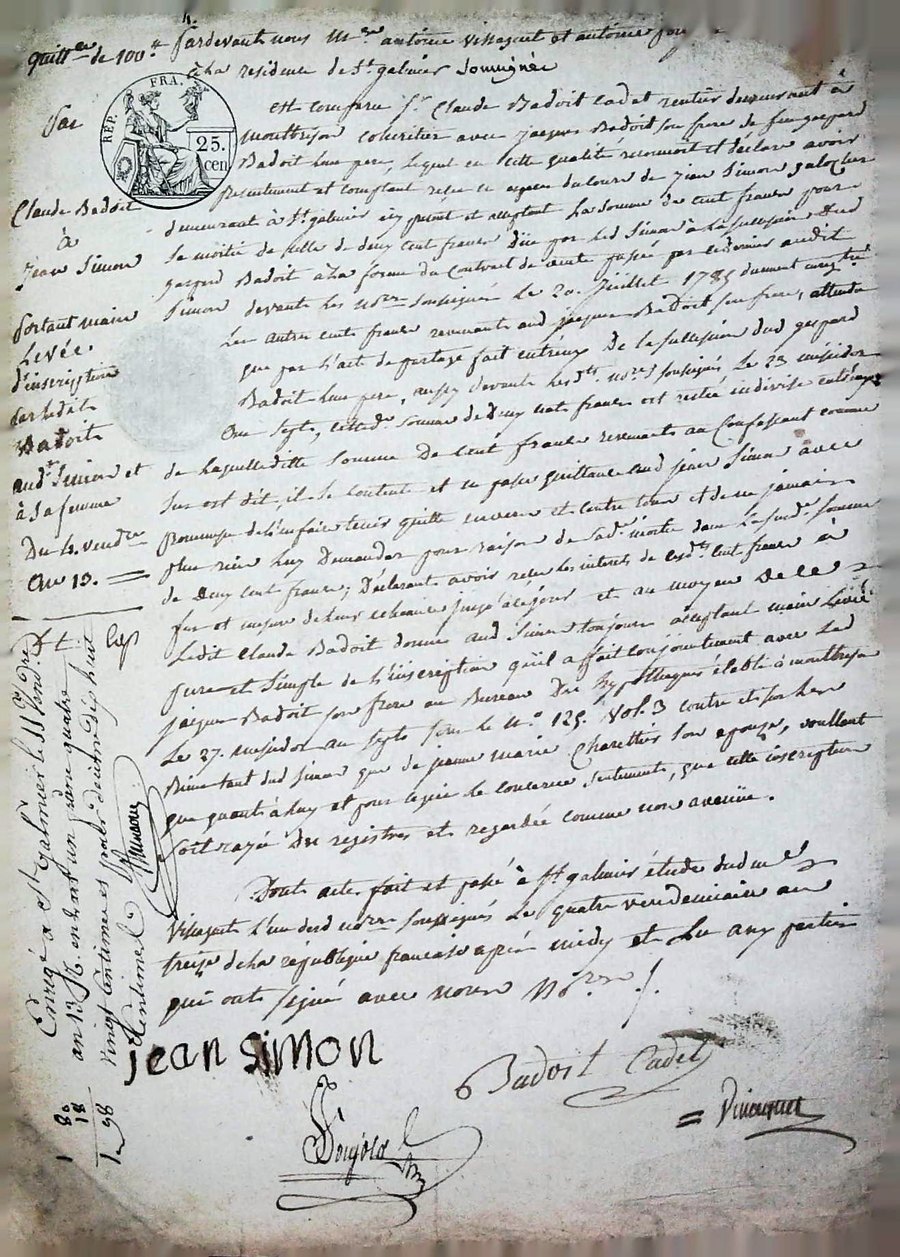 Quittce de 100 # Pardevant nous Mtres antoine Vissaguet et antoine
à la residence de St galmier soussignés
REP. FRA.
25.
cen
Par
Claude Badoit
à
Jean Simon
Portant main
Levée
d'inscription
par ledit
Badoit
aud. Simon et
à sa femme
Du 4. vendre
an 13. =
est comparu Sr. Claude Badoit Cadet rentier demeurant à
montbrison coheritier avec jacques Badoit son frere de feu gaspard
Badoit leur pere, lequel en cette qualité reconnoit et déclare avoir
presentement et comptant reçu en especes du cours de jean Simon galochier
demeurant à St galmier icy present et acceptant la somme de cent francs pour
la moitié de celle de deux cent francs düe par led Simon à la succession dud
gaspard Badoit à la forme du Contrat de vente passée par ce dernier audit
Simon devant les nores soussignés le 20. Juillet 1785
Les autres cents francs revenants aud jacques Badoit son frere, attendu
que par l'acte de partage fait entr'eux De la succession dud gaspard
Badoit leur pere, aussy devant lesdts. nores soussignés le 23 messidor
an sept, cette de. somme de deux cents francs est restée indivise entr'eux
de laquelle ditte somme De Cent francs revenants au Confessant comme
sus est dit, il se contente et en passe quittance aud jean Simon avec
promesse de l'en faire tenir quitte envers et contre tous et de ne jamais
plus rien luy Demander pour raison de sade. moitié dans lasusde somme
de deux cent francs; Déclarant avoir reçu les interets de cesdts. Cent francs à
fur et mesure de leur echeance jusqu'à ce jour et au moyen de ce
Ledit Claude Badoit donne aud Simon toujours acceptant main Levée
pure et simple de l'inscription qu'il a fait conjointement avec led
jacques Badoit son frere au Bureau Des hypothèques établi à montbrison
Le 27. messidor an sept sous le No. 125. Vol. 3 contre et sur les
Biens tant dud Simon que de jeanne marie Charettes son epouse, voullant
que quant à luy et pour ce qui le concerne seulement, que cette inscription
soit rayée Des registres et regardée comme non avenüe.
Dont acte, fait et passé à St galmier étude dud me
Vissaguet l'un desd nores soussignés Le quatre vendemiaire an
treize de la république francaise après midy et Lu aux parties
qui ont signé avec nous Nores
Enregé à St Galmier le 11 Vend.re
an 13 reçu un franc quatre
vingt Centimes pour
centimes
1 80
18
1 98
jean simon
Badoit Cadet